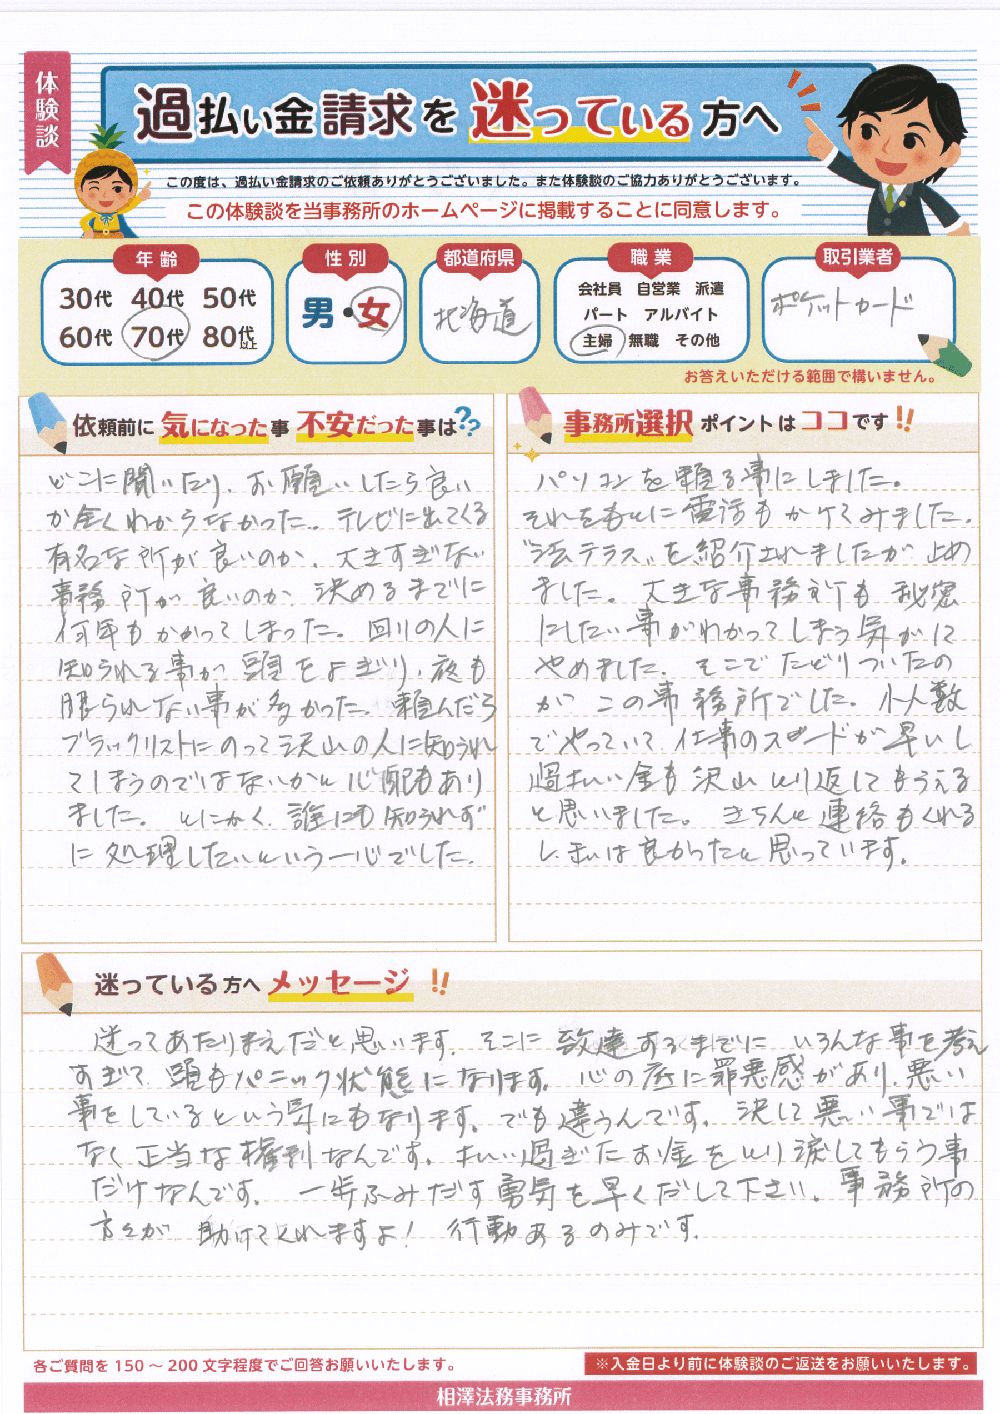 体験談
過払い金請求を迷っている方へ
この度は、過払い金請求のご依頼ありがとうございました。また体験談のご協力ありがとうございます。
この体験談を当事務所のホームページに掲載することに同意します。
年齢
30代 40代 50代
60代 70代 80代以上
性別
男・女
都道府県
北海道
職業
会社員 自営業 派遣
パート アルバイト
主婦 無職 その他
取引業者
ポケットカード
お答えいただける範囲で構いません。
依頼前に気になった事不安だった事は??
どこに聞いたり、お願いしたら良い
か全くわからなかった。テレビに出てくる
有名な所が良いのか、大きすぎない
事務所が良いのか、決めるまでに
何年もかかってしまった。回りの人に
知られる事が頭をよぎり、夜も
眠られない事が多かった。頼んだら
ブラックリストにのって沢山の人に知られ
てしまうのではないかと心配もあり
ました。とにかく、誰にも知られずに
に処理したいという一心でした。
事務所選択ポイントはココです!!
パソコンを頼る事にしました。
それをもとに電話もかけてみました。
"法テラス"を紹介されましたが止め
ました。大きな事務所も秘密
にしたい事がわかってしまう気がして
やめました。そこでたどりついたの
がこの事務所でした。小人数
でやっていて、仕事のスピードが早いし
過払い金も沢山とり返してもらえる
と思いました。きちんと連絡もくれる
し、まいは良かったと思っています。
迷っている方へメッセージ!!
迷ってあたりまえだと思います。そこに到達するまでにいろんな事を考え
すぎて頭もパニック状態になります。心の底に罪悪感があり、悪い
事をしているという気にもなります。でも違うんです。決して悪い事では
なく正当な権利なんです。払い過ぎたお金をとり戻してもらう事
だけなんです。一歩ふみだす勇気を早くだして下さい。事務所の
方々が助けてくれますよ!行動あるのみです。
各ご質問を150～200文字程度でご回答お願いいたします。
※入金日より前に体験談のご返送をお願いいたします。
相澤法務事務所